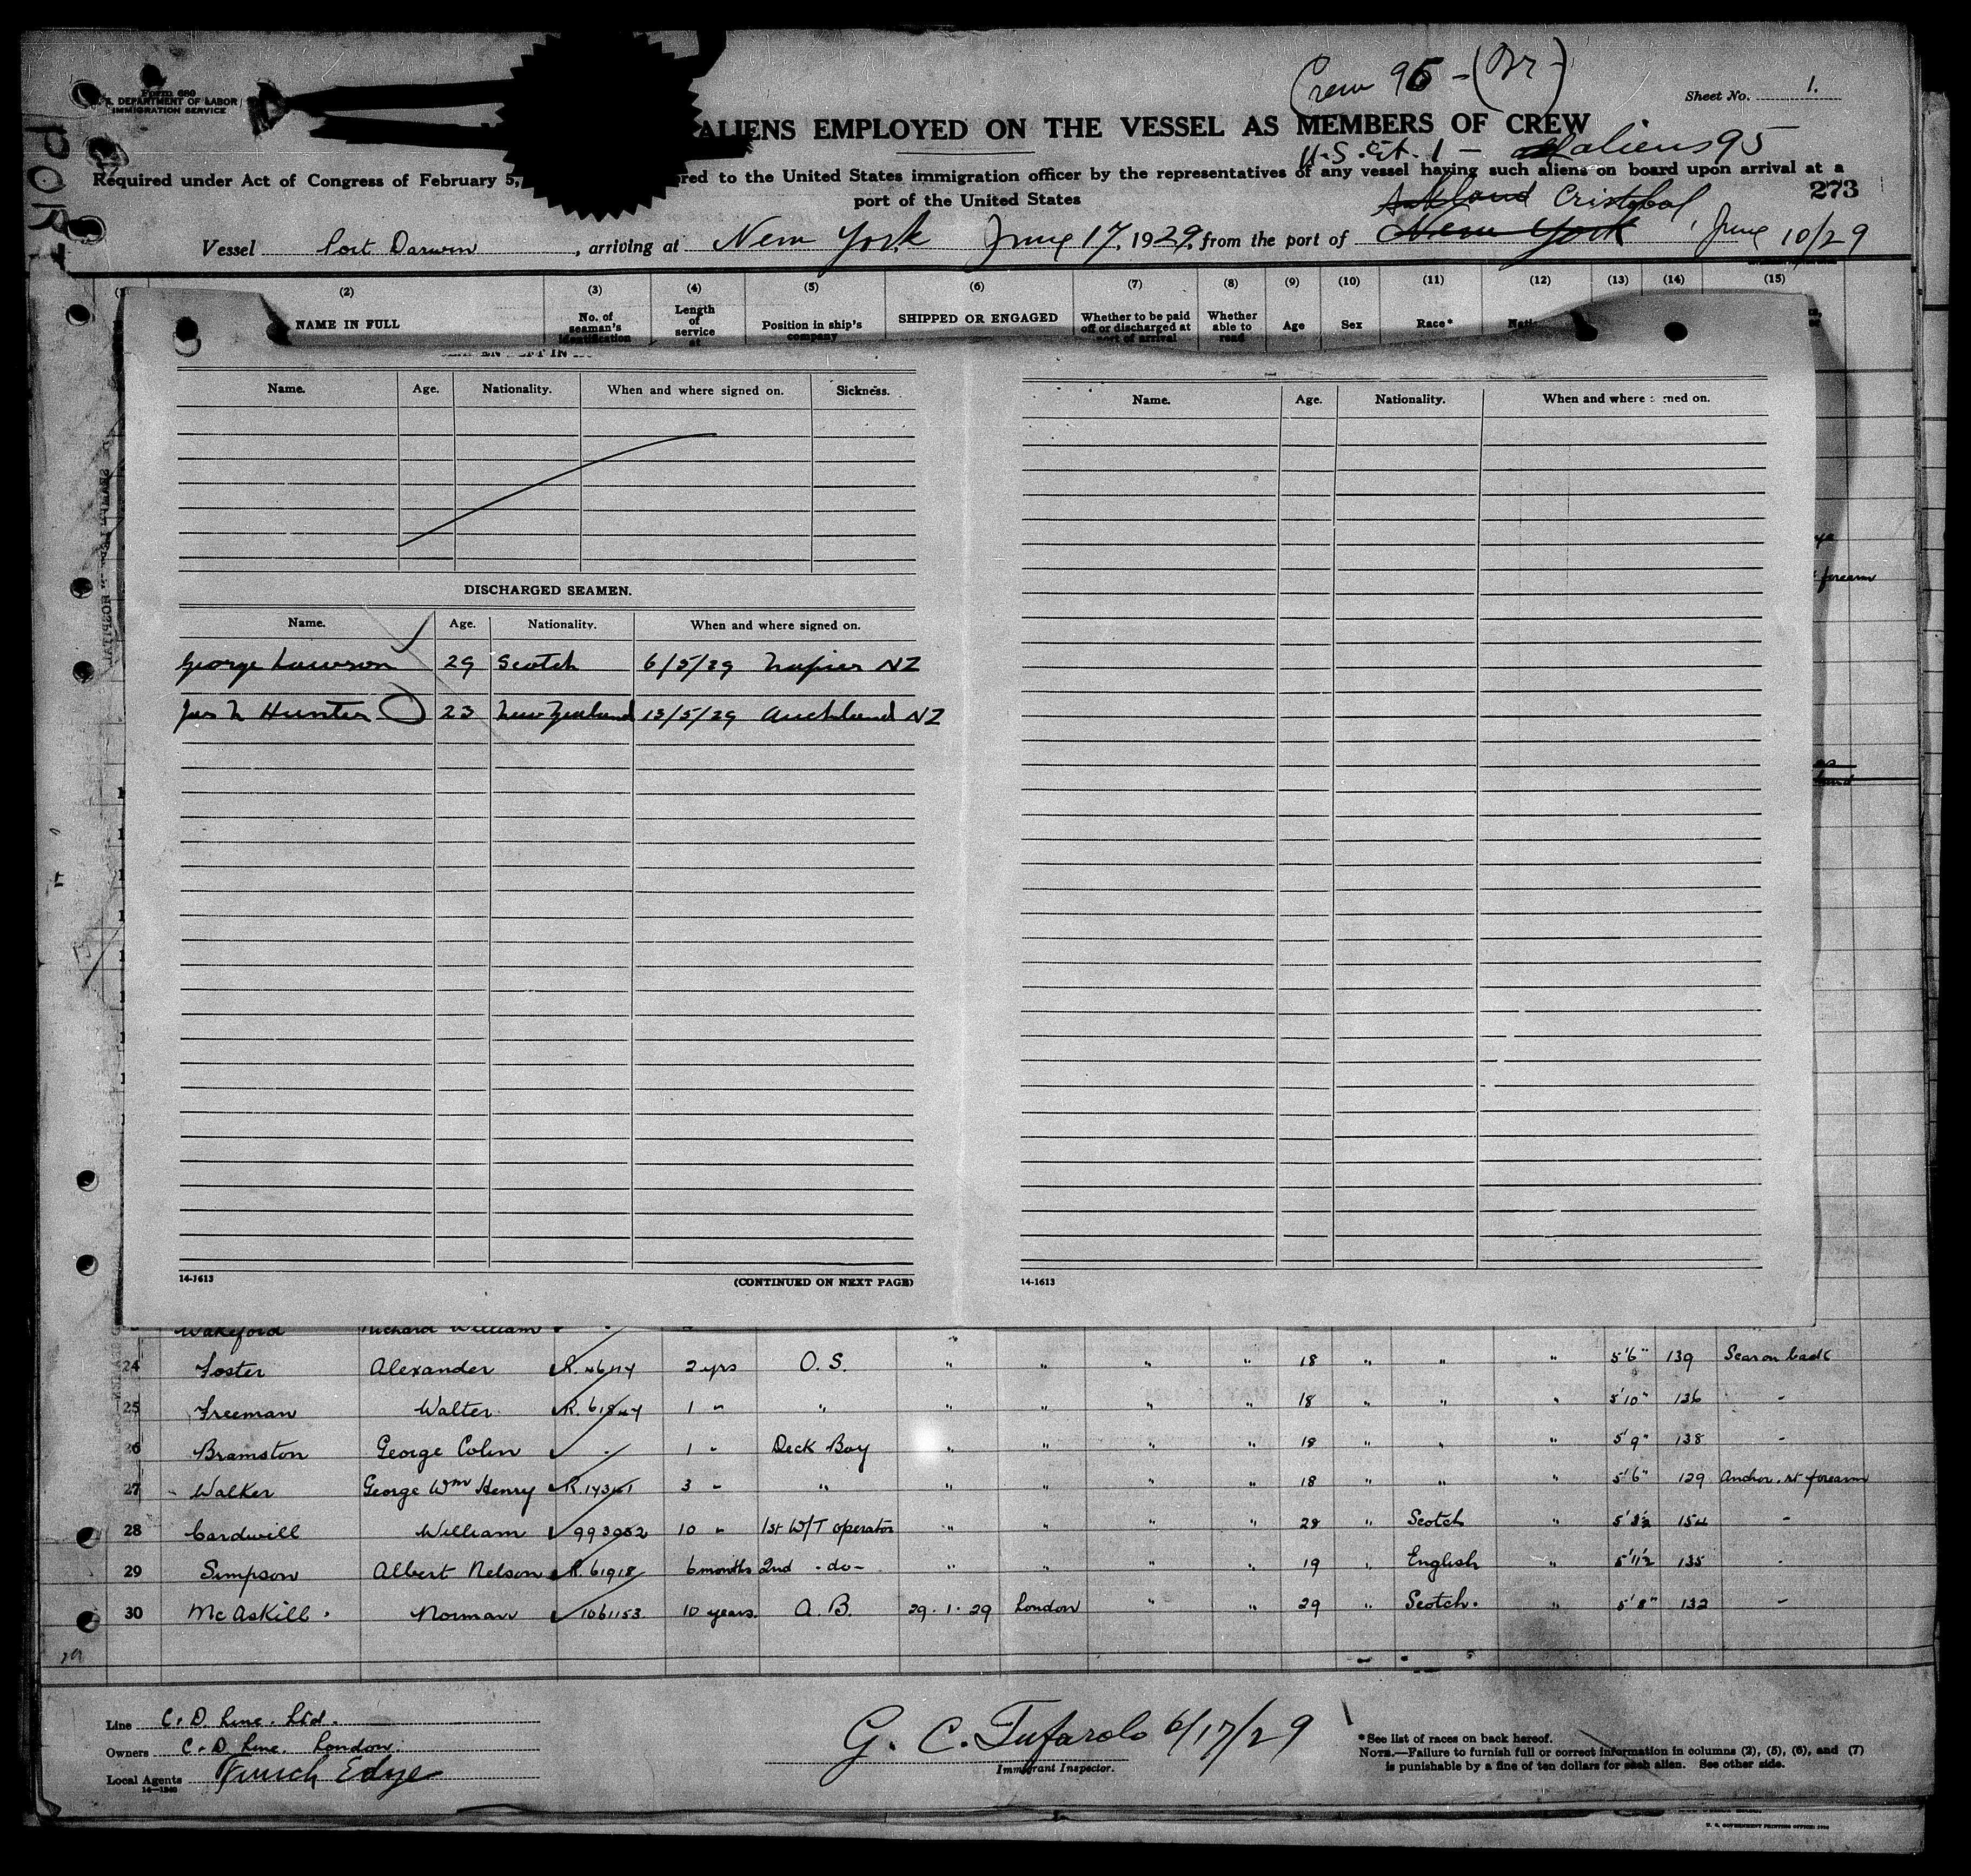 Crew 96 - (Br -)
Form 680
U. S. DEPARTMENT OF LABOR
IMMIGRATION SERVICE
Sheet No. 1.
ALIENS EMPLOYED ON THE VESSEL AS MEMBERS OF CREW
U.S. Cit. 1 - aliens 95
Required under Act of Congress of February 5, red to the United States immigration officer by the representatives of any vessel having such aliens on board upon arrival at a
port of the United States
273
Cristobal
Vessel Port Darwin, arriving at New York June 17, 1929, from the port of New York, June 10/29
(2) (3) (4) (5) (6) (7) (8) (9) (10) (11) (12) (13) (14) (15)
NAME IN FULL No. of seaman's identification Length of service at Position in ship's company SHIPPED OR ENGAGED Whether to be paid off or discharged at port of arrival Whether able to read Age Sex Race*
Name. Age. Nationality. When and where signed on. Sickness.
Name. Age. Nationality. When and where signed on.
forearm
DISCHARGED SEAMEN.
Name. Age. Nationality. When and where signed on.
George Lawson 29 Scotch 6/5/29 Napier NZ
Jas N Hunter 23 New Zealand 13/5/29 Auckland NZ
14-1613 (CONTINUED ON NEXT PAGE) 14-1613
Wakeford Richard William
24 Foster Alexander 2 yrs O. S. " " " " 18 " " " 5'6" 139 Scar on back
25 Freeman Walter 1 " " " " " " 18 " " " 5'10" 136 -
26 Bramston George Colin - 1 " Deck Boy " " " " 18 " " " 5'9" 138 -
27 Walker George Wm Henry R. 14361 3 " " " " " " 18 " " " 5'6" 129 Anchor. rt forearm
28 Cardwill William 993952 10 " 1st W/T operator " " " " 28 " Scotch " 5'8½ 154 -
29 Simpson Albert Nelson R. 61918 6 months 2nd -do- " " " " 19 " English " 5'11½ 135 -
30 McAskill Norman 1061153 10 years. A. B. 29.1.29 London " " 29 " Scotch. " 5'8" 132 -
Line C. D. Line. Ltd.
Owners C. D. Line. London.
Local Agents Funch Edye
14-1240
G. C. Tufarolo 6/17/29
Immigrant Inspector.
*See list of races on back hereof.
NOTE.—Failure to furnish full or correct information in columns (2), (5), (6), and (7)
is punishable by a fine of ten dollars for each alien. See other side.